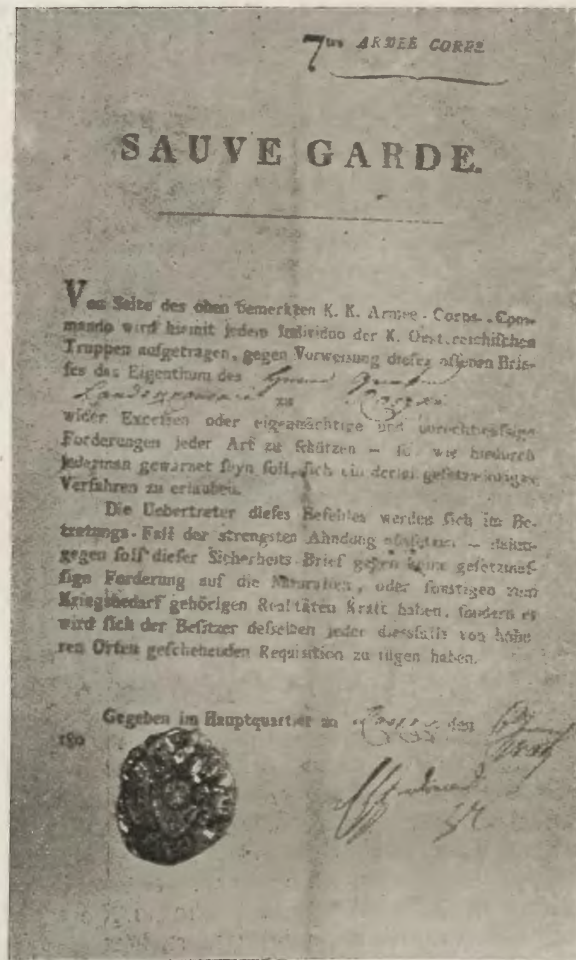 7tes ARMEE CORPS
SAUVE GARDE.
Von Seite des oben bemerkten K. K. Armee-Corps-Com-
mando wird hiemit jedem Individuo der K. Oestreichischen
Truppen aufgetragen, gegen Vorweisung dieses offenen Brie-
fes das Eigenthum des
zu
wider Excessen oder eigenmächtige und unrechtmässige
Forderungen jeder Art zu schützen – so wie hiedurch
jederman gewarnet seyn soll, sich ein derlei gesetzwidriges
Verfahren zu erlauben.
Die Uebertreter dieses Befehles werden sich im Be-
tretungs-Fall der strengsten Ahndung aussetzen – dahin-
gegen soll dieser Sicherheits-Brief gegen keine gesetzmäs-
sige Forderung auf die Naturalien, oder sonstigen zum
Kriegsbedarf gehörigen Realitäten Kraft haben, sondern es
wird sich der Besitzer desselben jeder diessfalls von höhe-
ren Orten geschehenden Requisition zu fügen haben.
Gegeben im Hauptquartier zu den
180